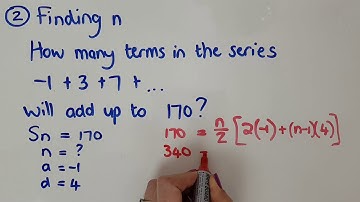 ② Finding n
How many terms in the series
-1 + 3 + 7 + ...
will add up to 170?
Sn = 170
n = ?
a = -1
d = 4
170 = n/2 [2(-1) + (n-1)(4)]
340 =